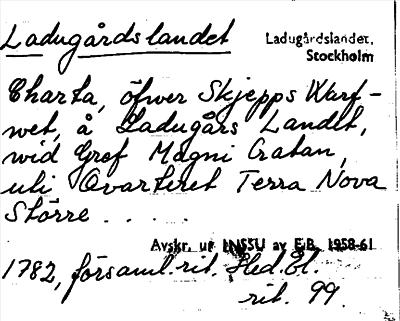 Ladugårdslandet
Ladugårdslandet,
Stockholm
Charta, öfwer Skjepps Warf-
wet, å Ladugårs Landet,
wid Gref Magni Cratan,
uti Qvarteret Terra Nova
Större . . . . .
Avskr. ur INSSU av E.B. 1958-61
1782, församl. rit. Hed. El.
rit. 99.